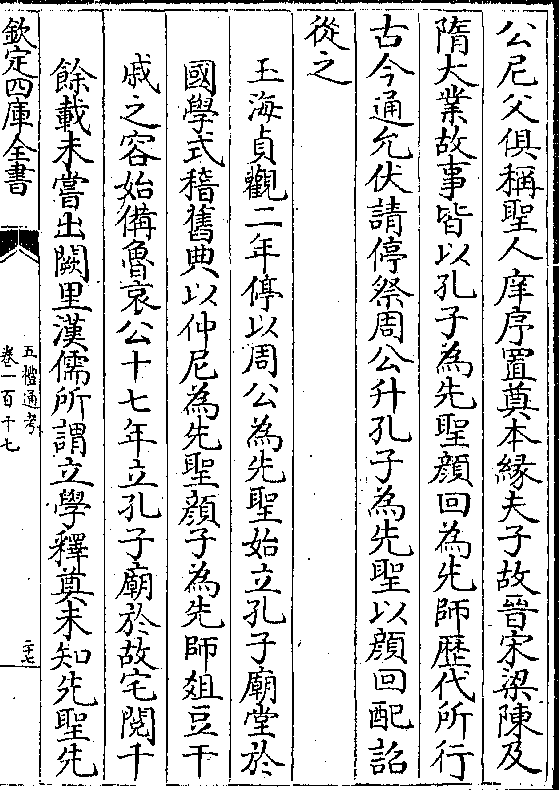 公尼父俱稱聖人庠序置奠本緣夫子故晉宋梁陳及
隋大業故事皆以孔子為先聖顔回為先師歴代所行
古今通允伏請停祭周公升孔子為先聖以顔回配詔
從之
玉海貞觀二年停以周公為先聖始立孔子廟堂於
國學式稽舊典以仲尼為先聖顔子為先師俎豆干
戚之容始備魯哀公十七年立孔子廟於故宅閲千
餘載未嘗出闕里漢儒所謂立學釋奠未知先聖先
欽定四庫全書
五禮通考
卷一百十七
二十七